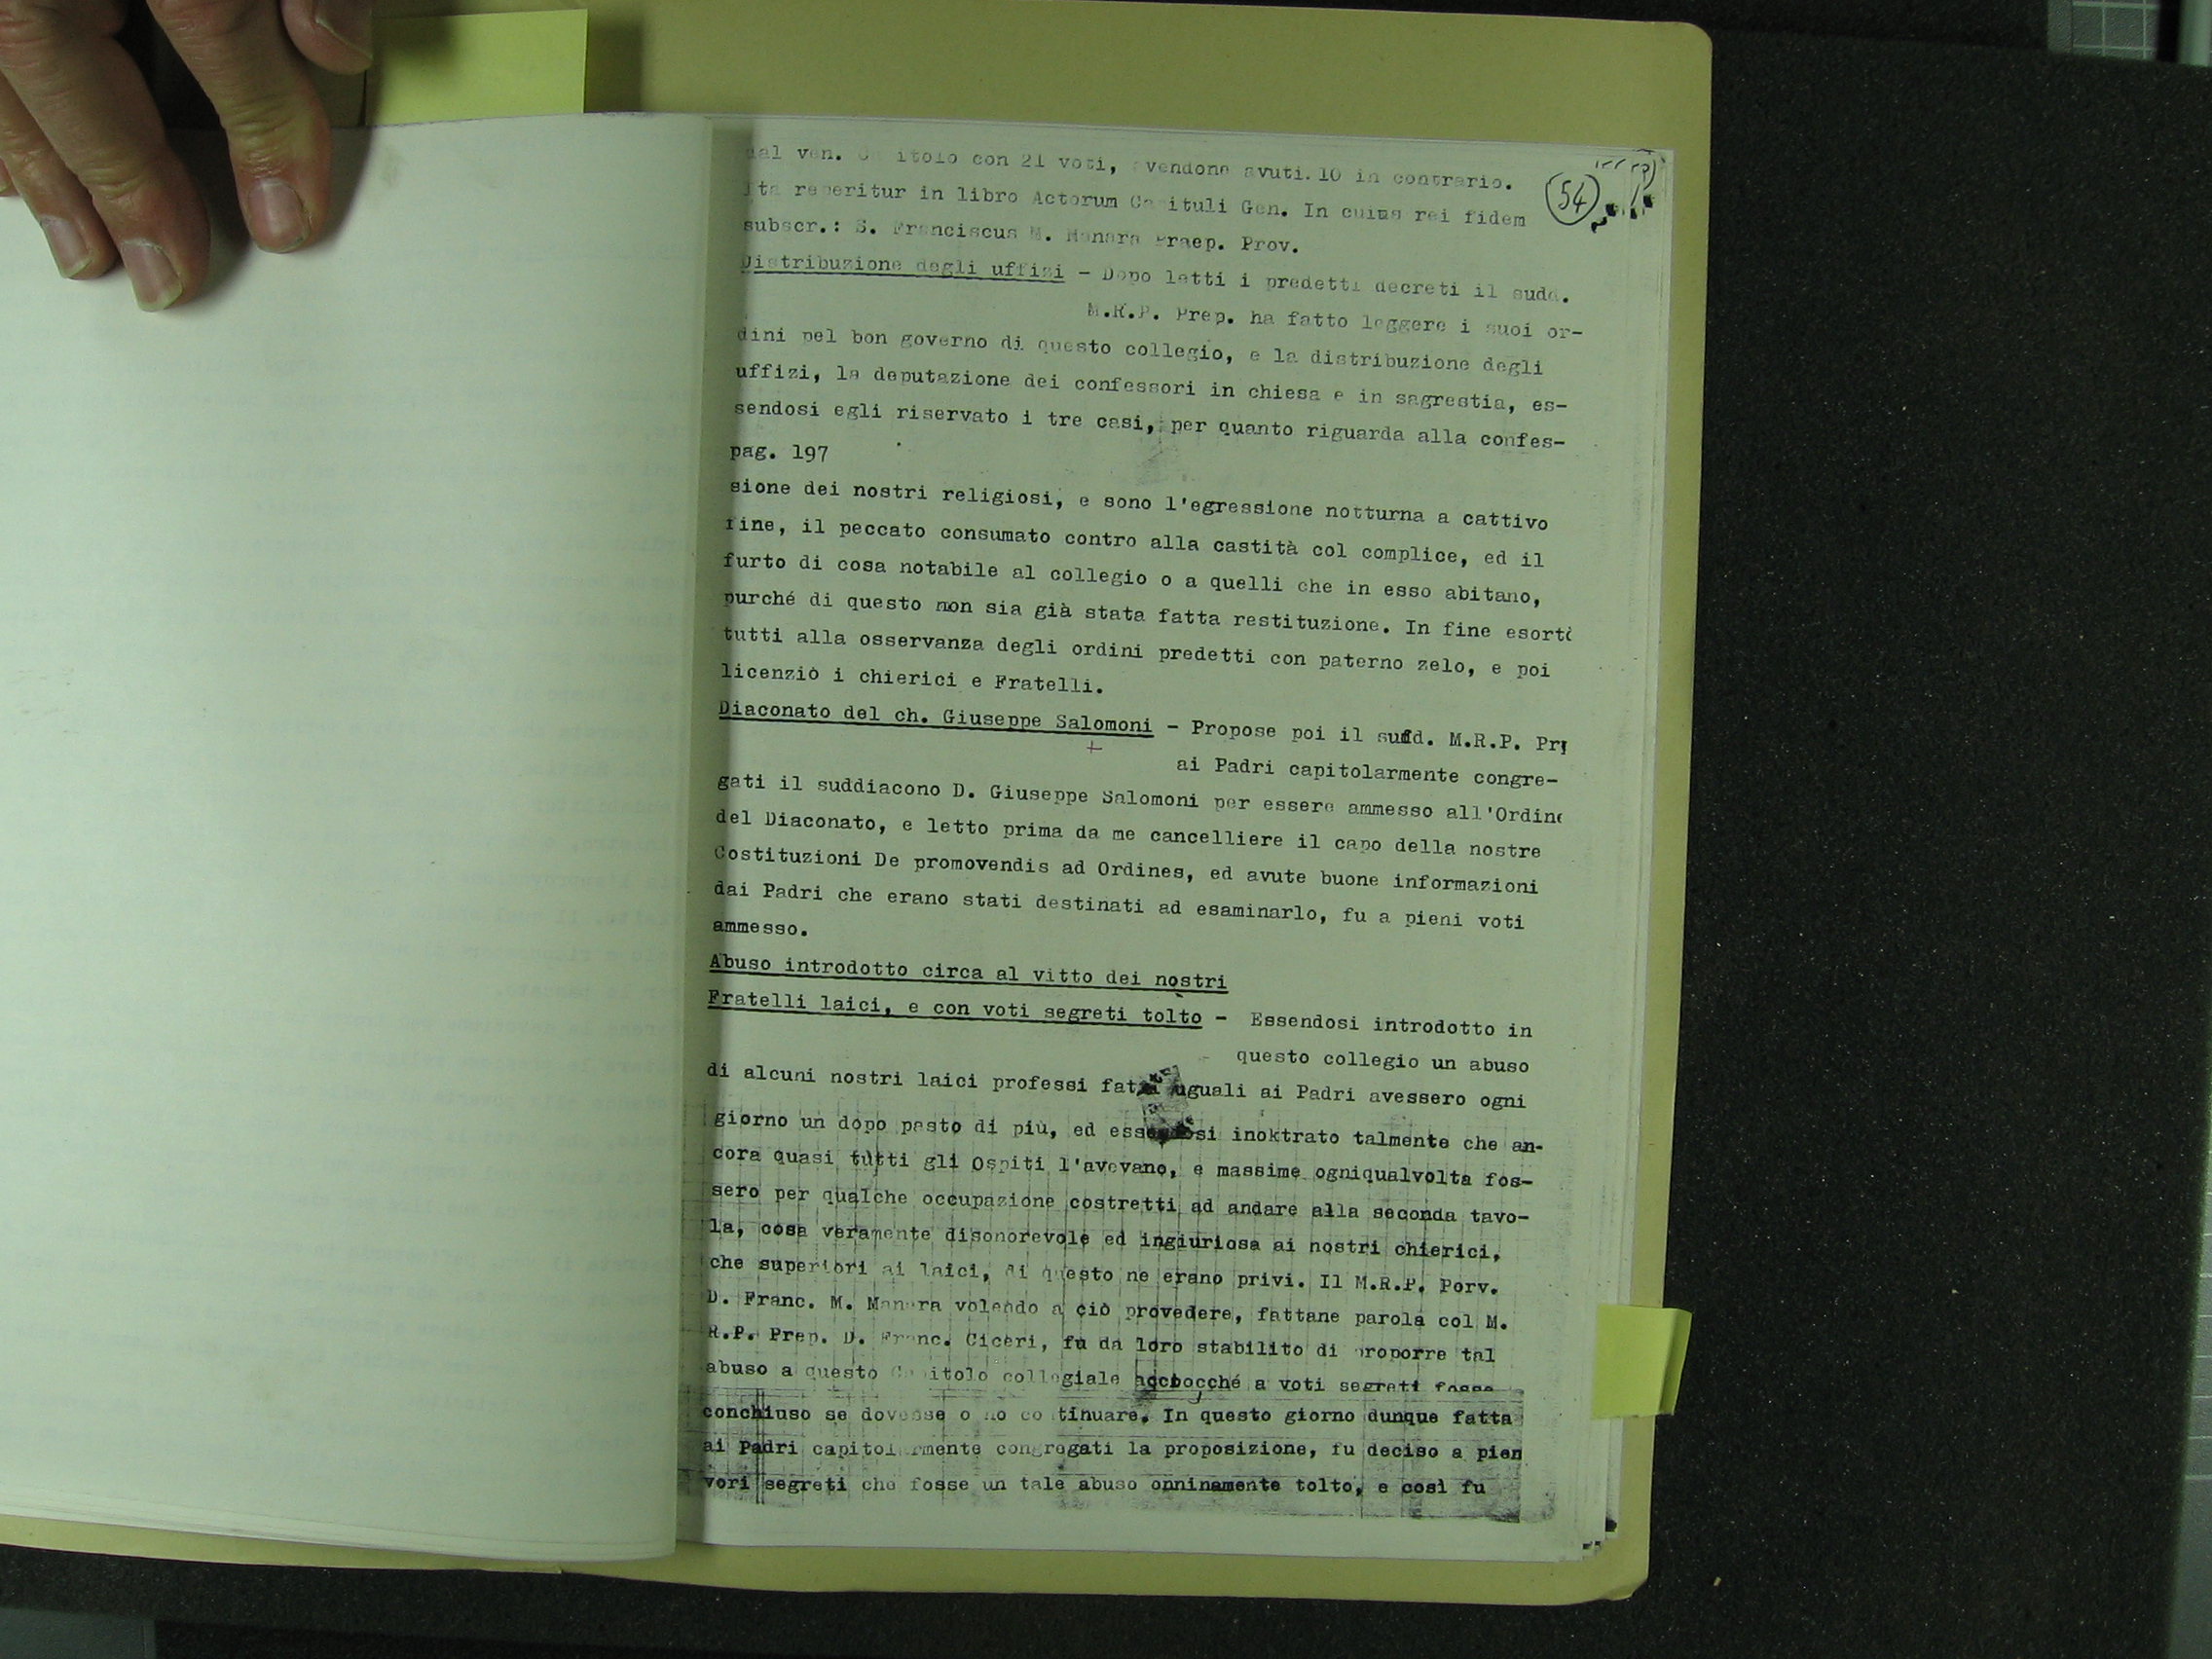 dal ven. Capitolo con 21 voti, avendone avuti 10 in contrario.
54
Ita reperitur in libro Actorum Capituli Gen. In cuius rei fidem
subscr.: S. Franciscus M. Manara Praep. Prov.
Distribuzione degli uffizi - Dopo letti i predetti decreti il sudd.
M.R.P. Prep. ha fatto leggere i suoi or-
dini pel bon governo di questo collegio, e la distribuzione degli
uffizi, la deputazione dei confessori in chiesa e in sagrestia, es-
sendosi egli riservato i tre casi, per quanto riguarda alla confes-
pag. 197
sione dei nostri religiosi, e sono l'egressione notturna a cattivo
fine, il peccato consumato contro alla castità col complice, ed il
furto di cosa notabile al collegio o a quelli che in esso abitano,
purché di questo non sia già stata fatta restituzione. In fine esortò
tutti alla osservanza degli ordini predetti con paterno zelo, e poi
licenziò i chierici e Fratelli.
Diaconato del ch. Giuseppe Salomoni - Propose poi il sudd. M.R.P. Pr
ai Padri capitolarmente congre-
gati il suddiacono D. Giuseppe Salomoni per essere ammesso all'Ordine
del Diaconato, e letto prima da me cancelliere il capo della nostre
Costituzioni De promovendis ad Ordines, ed avute buone informazioni
dai Padri che erano stati destinati ad esaminarlo, fu a pieni voti
ammesso.
Abuso introdotto circa al vitto dei nostri
Fratelli laici, e con voti segreti tolto - Essendosi introdotto in
questo collegio un abuso
di alcuni nostri laici professi fatti uguali ai Padri avessero ogni
giorno un dopo pasto di più, ed essendosi inoktrato talmente che an-
cora quasi tutti gli Ospiti l'avevano, e massime ogniqualvolta fos-
sero per qualche occupazione costretti ad andare alla seconda tavo-
la, cosa veramente disonorevole ed ingiuriosa ai nostri chierici,
che superiori ai laici, di questo ne erano privi. Il M.R.P. Porv.
D. Franc. M. Manara volendo a ciò provedere, fattane parola col M.
R.P. Prep. D. Franc. Ciceri, fu da loro stabilito di proporre tal
abuso a questo Capitolo collegiale acciocché a voti segreti fosse
conchiuso se dovesse o no continuare. In questo giorno dunque fatta
ai Padri capitolarmente congregati la proposizione, fu deciso a pien
vori segreti che fosse un tale abuso onninamente tolto, e così fu